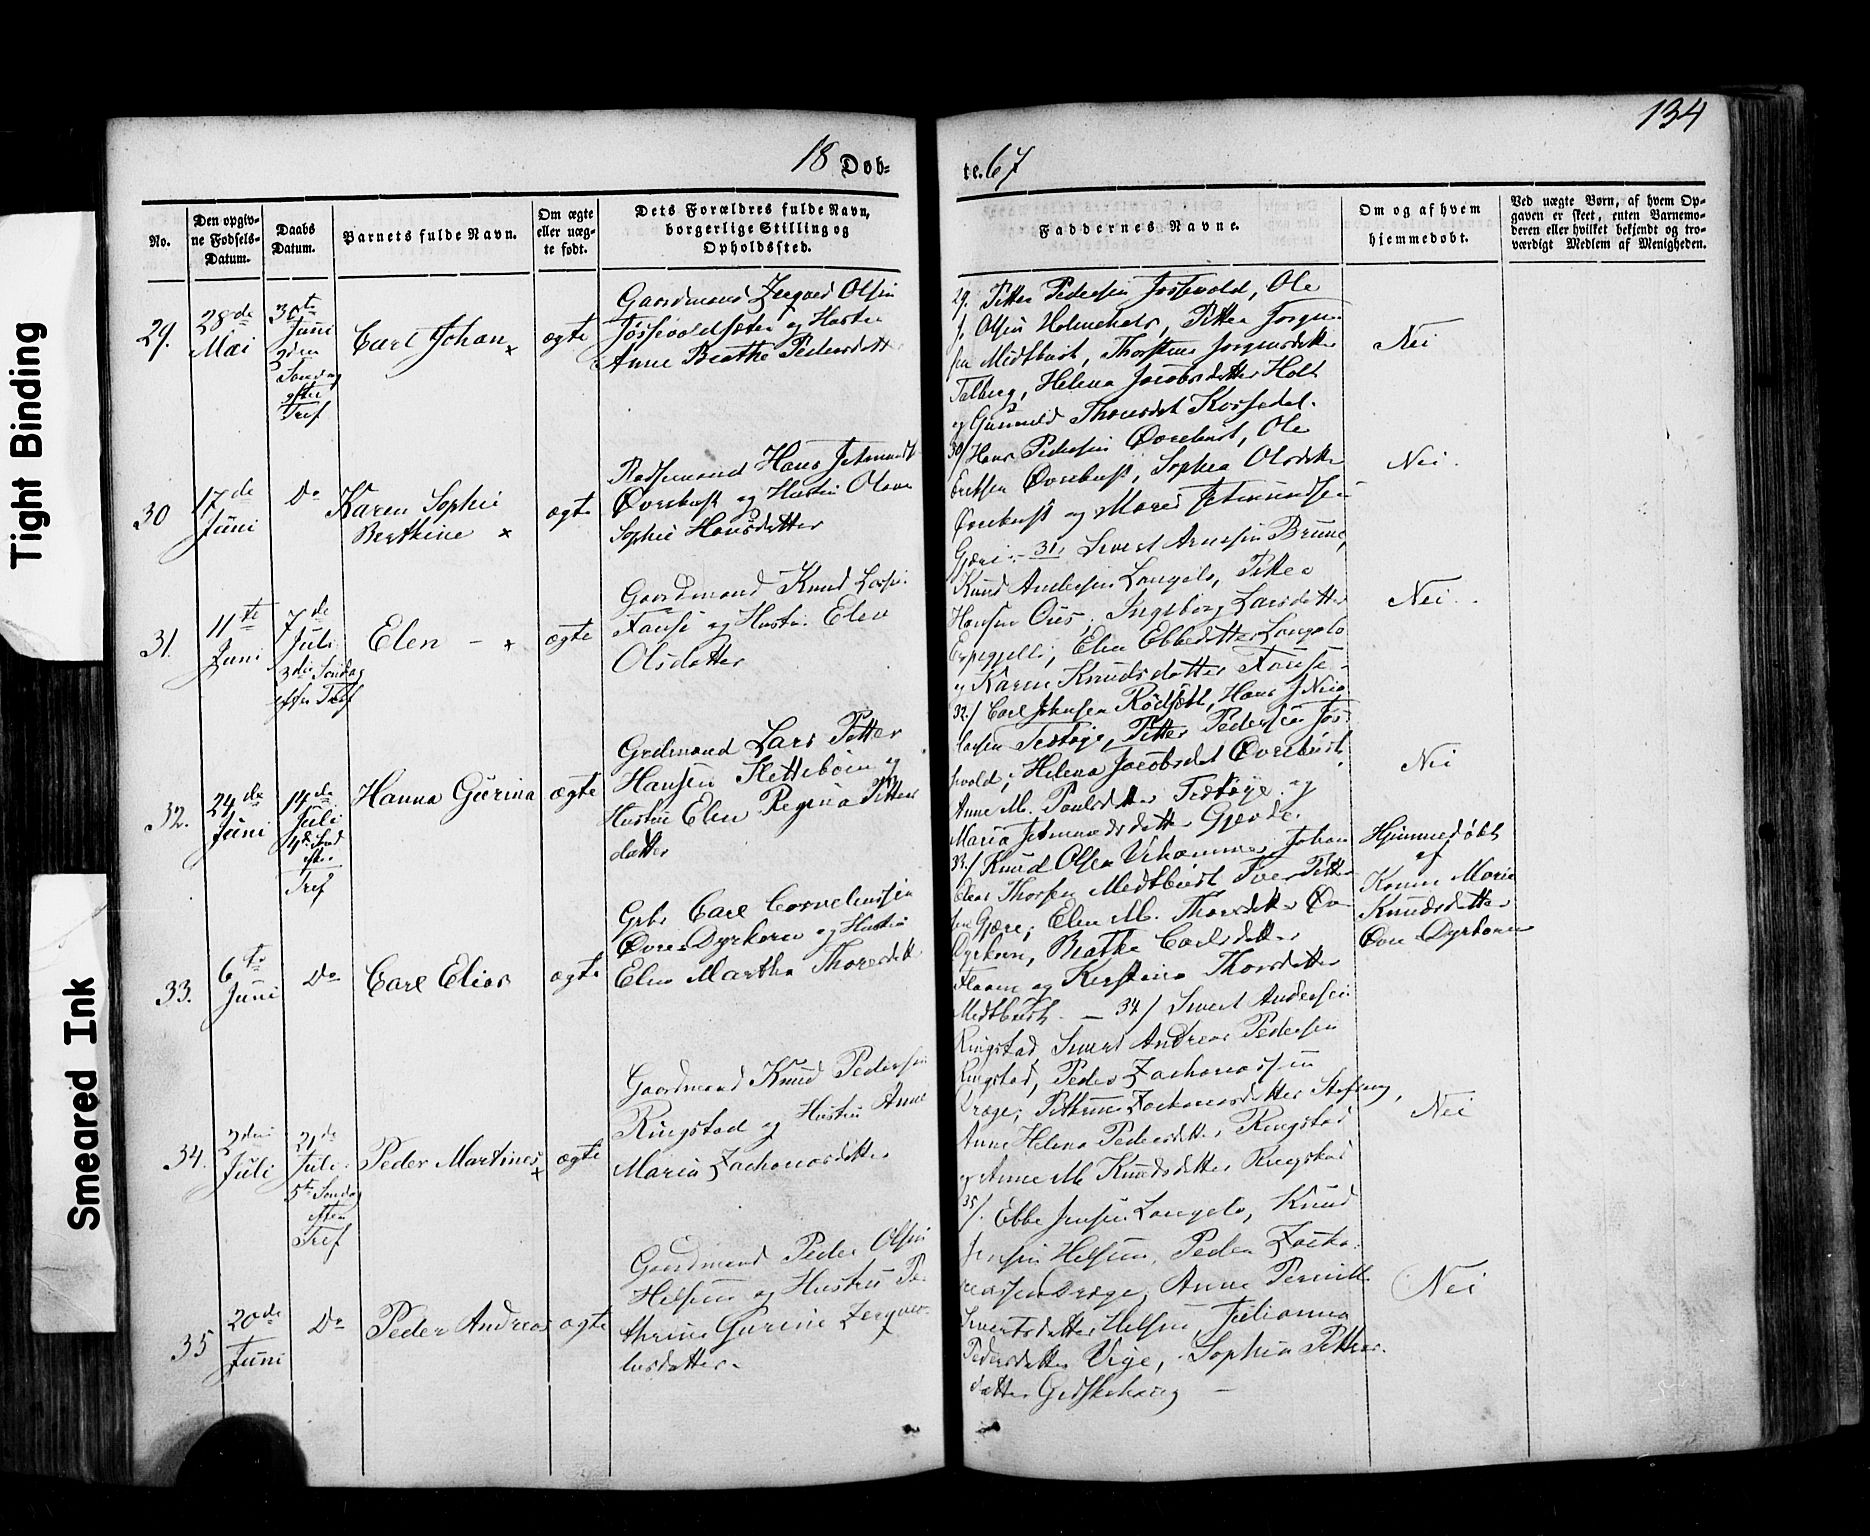 134
18 Døb=
te. 67
No.
Den opgiv-
ne Fødsels-
Datum.
Daabs
Datum.
Barnets fulde Navn.
Om ægte
eller uæg-
te født.
Dets Forældres fulde Navn,
borgerlige Stilling og
Opholdssted.
Faddernes Navne.
Om og af hvem
hjemmedøbt.
Ved uægte Børn, af hvem Op-
gaven er skeet, enten Barnemo-
deren eller hvilket bekjendt og tro-
værdigt Medlem af Menigheden.
29.
28de
Mai
30te
Juni
2den
Søndag
efter
Tref
Carl Johan x
ægte
Gaardmand Olsen
og Hustru
Anne Beathe Pedersdatter
29. Petter Pedersen Jossevold, Ole
J. Olsen Holmeholm, Petter Jørgen-
sen Medtbust, Thorstine Jørgensdatter
Talberg, Helena Jacobsdatter Holt
og Gunnild Thoresdat
Nei
30
17de
Juni
Do
Karen Sophie
Berthine x
ægte
Hans Jetmundsen
Øvrebust og Hustru Olave
Sophie Hansdatter
30/ Hans Pedersen Øvrebust, Ole
Øvrebust, Sophia Olsdatter
Øvrebust og Maren Jetmundsen
Nei.
31.
11te
Juni
7de
Juli
3die Søndag
efter Tref
Elen - x
ægte
Gaardmand Knud
og Hustru Elen
Olsdatter
Gjære. - 31, Sivert Arnesen Brune,
Knud Andersen Langelo, Petter
Hansen Ous, Ingeborg Larsdatter
Elen Ebbesdatter Langelo
og Karen Knudsdatter
Nei.
32.
24de
Juni
14de
Juli
4de Sønd
efter
Tref
Hanna Gurina
ægte
Grdmand Lars Petter
Hansen og
Hustru Elen Regina Petters
datter
32./ Carl Johnsen Rødsæt, Hans J. Nico-
laisen Festøye, Petter Pedersen Jos-
sevold, Helena Jacobsdat Øvrebust,
Anne M. Paulsdatter Festøye og
Maria Jetmundsdatter Gjerde.
Nei
33.
6te
Juni
Do
Carl Elias
ægte
Grbr Carl Corneliussen
Øvre Dyrkorn og Hustru
Elen Martha Thoresdatt
33./ Knud Olsen Johan
Elias Thorsen Medtbust Iver Petter
sen Gjære, Elen M. Thoresdatter Øv
Dyrkorn, Beathe Carlsdatter
og Kirstine Thorsdatter
Medtbust.
Hjemmedøbt
af
Karen Marie
Knudsdatter
Øvre Dyrkorn
34.
2den
Juli
21de
Juli.
5te Søndag
efter
Tref
Peder Martines x
ægte
Gaardmand Knud Pedersen
Ringstad og Hustru Anne
Maria Zachariasdatter
- 34/ Sivert Andersen
Ringstad, Sivert Andreas Pedersen
Ringstad, Peder Zachariassen
Drage, Zachariasdatter
Anne Helena Pedersdatter Ringstad
og Anne M Knudsdatter Ringstad
Nei
35
20de
Juni
Do
Peder Andreas
ægte
Gaardmand Peder Olsen
Helsem og Hustru Pe-
thrine Gurine
datter.
35/. Ebbe Jensen Langelo, Knud
Jensen Helsem, Peder Zacha-
riassen Drage, Anne Pernille
Sivertsdatter Helsem Julianna
Pedersdatter Vige, Sophia Petters-
datter Gidskehaug -
Nei
Tight Binding
Smeared Ink